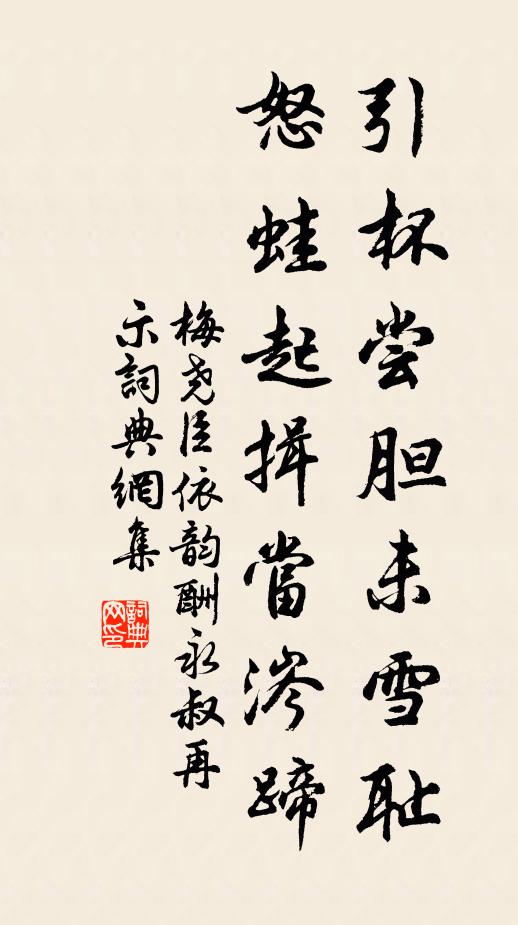 引杯尝胆未雪耻
怒蛙起揖當涔蹄
梅尧臣依韵酬永叔再
示詞典網集
詞典网印